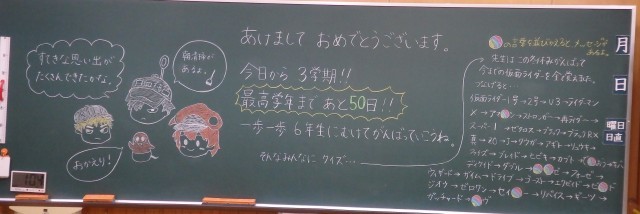 すてきな思い出が
たくさんできたかな。
朝清掃が
あるよ!
おかえり!
あけまして おめでとうございます。
今日から 3学期!!
最高学年まで あと50日!!
一歩一歩 6年生にむけてがんばっていこうね。
そんなみんなに クイズ…
の言葉を並びかえると メッセージ
あるよ。
先生は この
今までの仮面ライダーを全て覚えました。
つなげると…
仮面ライダー 1号→2号→V3→ライダーマン
X→アマ ン→ストロンガー→
スーパー1→ゼクロス→ブラック→ブラックRX
真→ZO→J→クウガ→アギト→リュウキ→
ファイズ→ブレイド→ヒビキ→カブト→
ディケイド→ダブル→ →フォーゼ→
ウィザード→ガイム→ドライブ→ゴースト→エグゼイド→ビ ド→
ジオウ→ゼロワン→セイ →リバイス→ギーツ→
ガッチャード→
月
日
曜日
日直